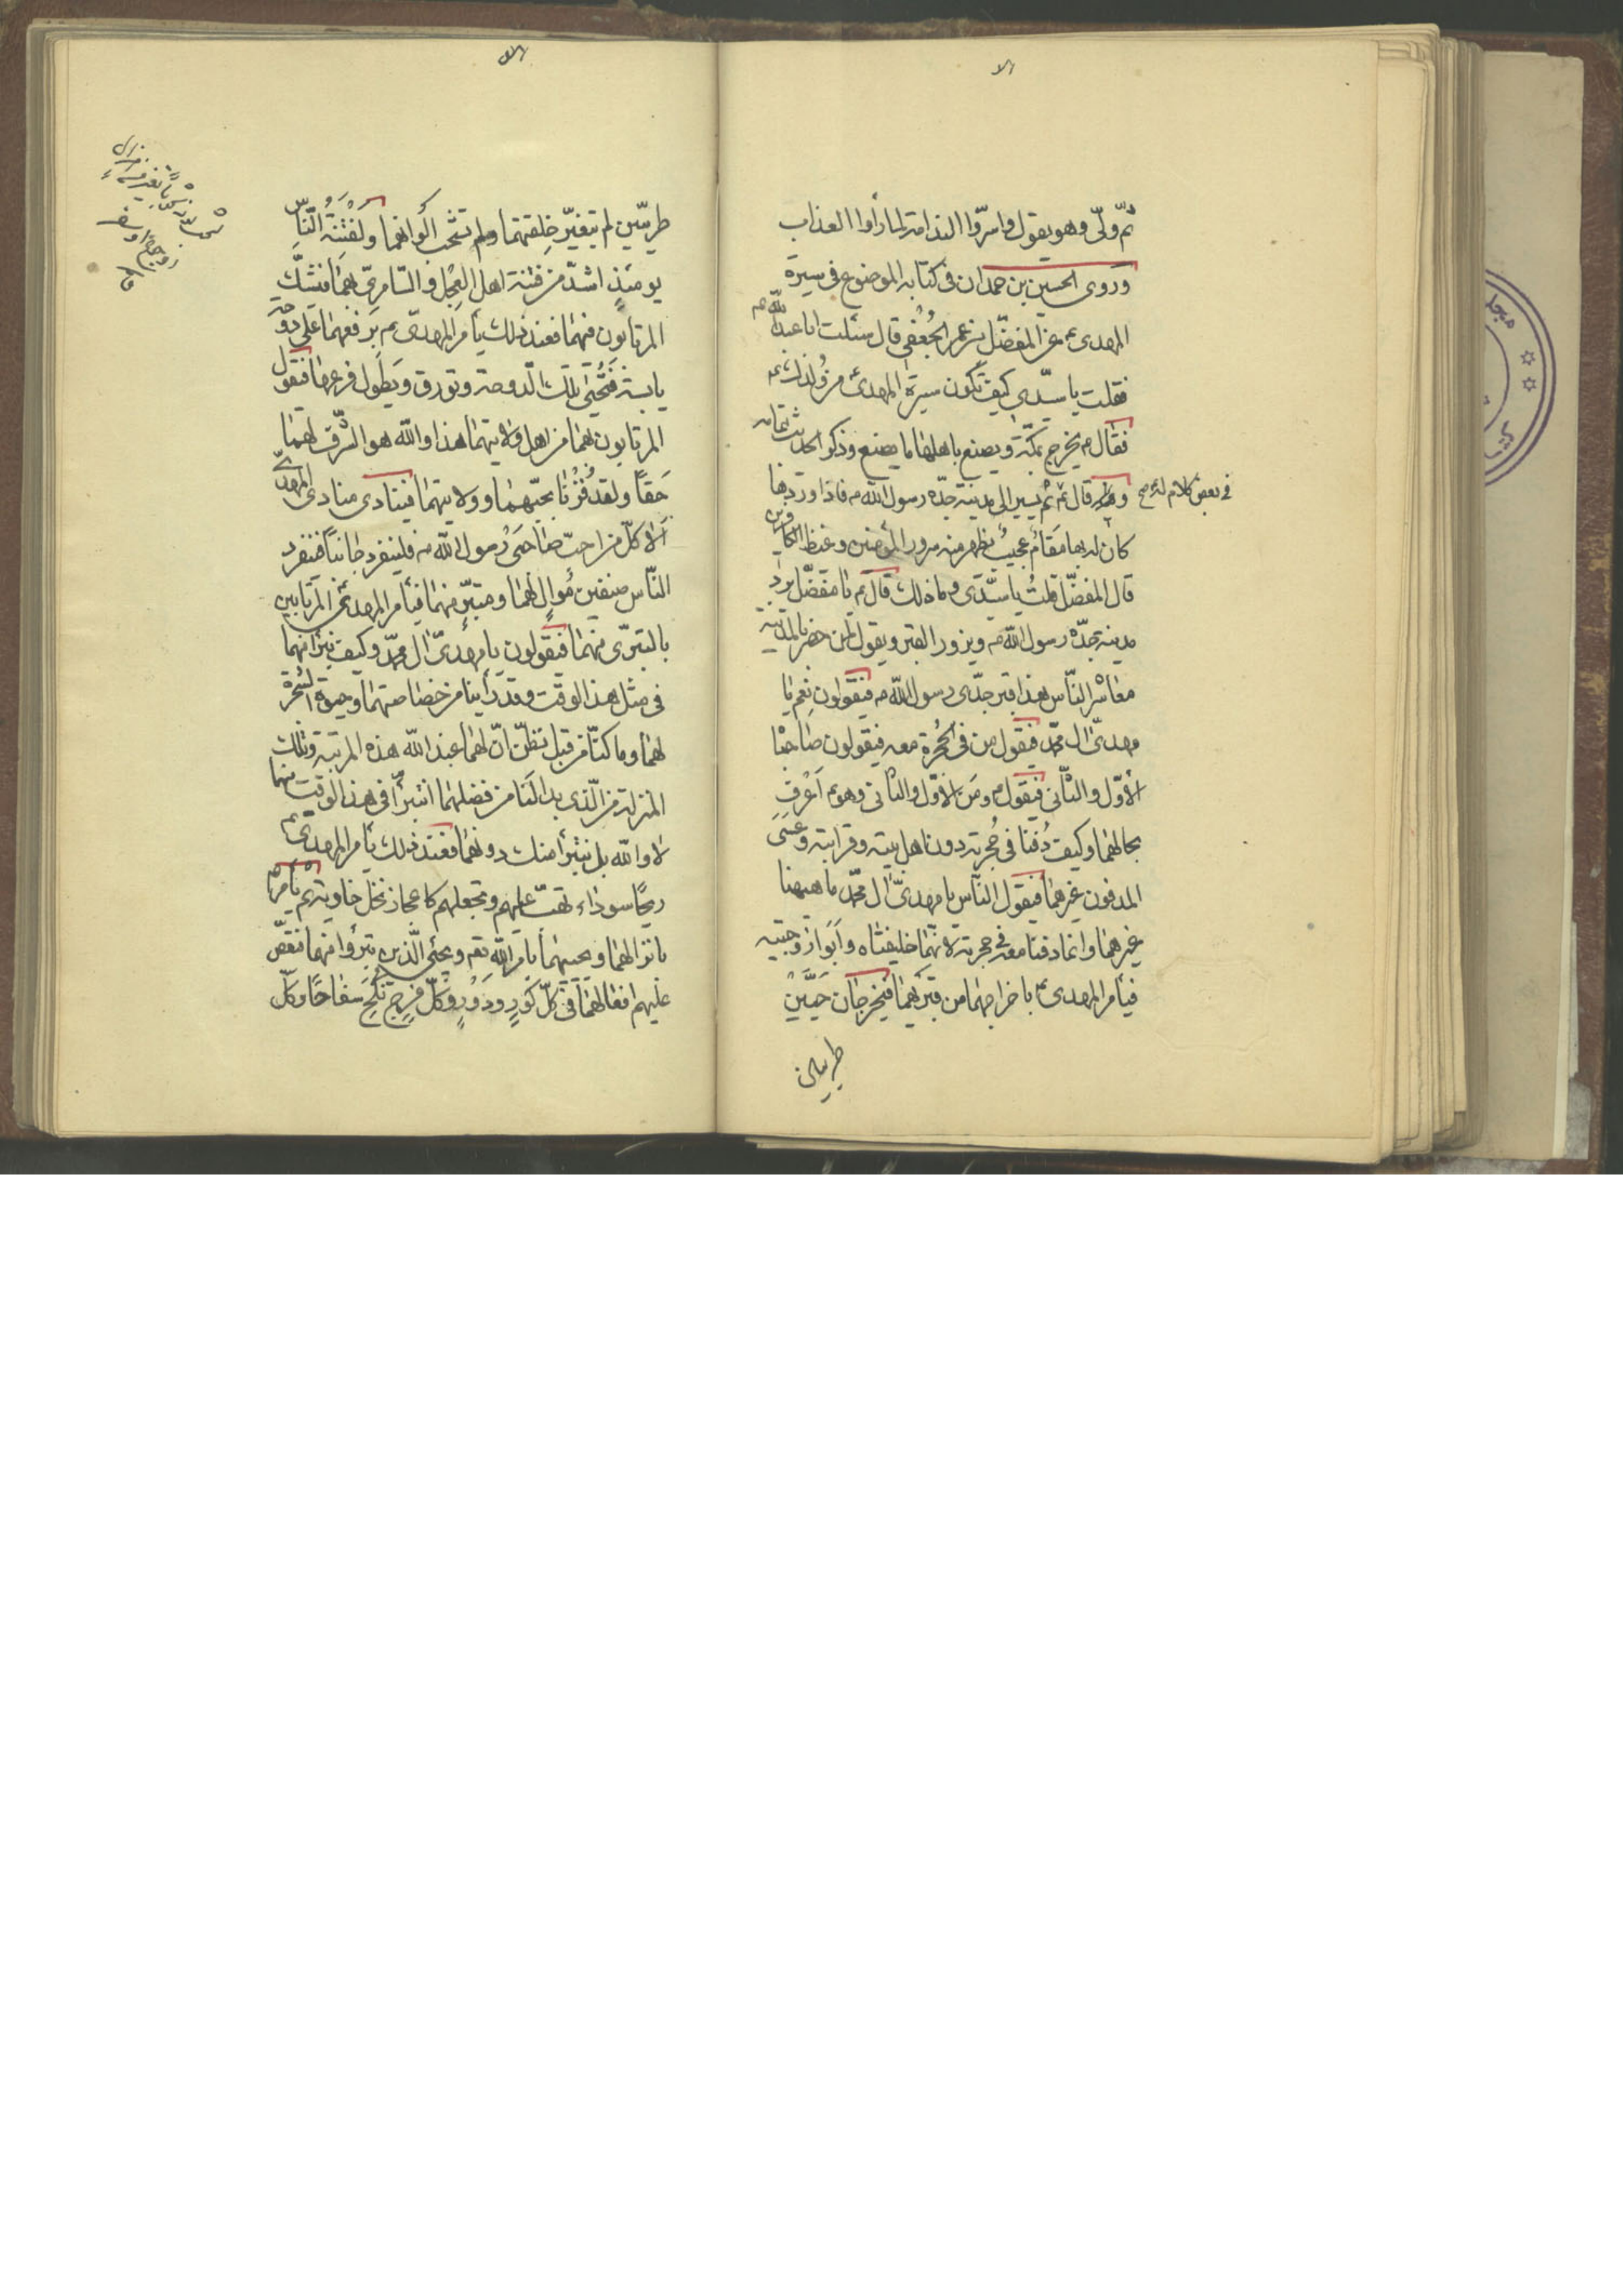 ثم ولّى وهو يقول واسرّوا الندامة لما رأوا العذاب
وروى الحسين بن حمدان فى كتابه الموضوع فى سيرة
المهدى ع عن المفضّل بن عمر الجُعْفى قال سئلت ابا عبد اللّه ع
فقلت يا سيّدى كيف تكون سيرة المهدى من وُلدك
فقال ع يخرج بمكّة ويصنع باهلها ما يصنع وذكر الحديث بتمامه
فى بعض كلام له صح
قال ع ثم يسير الى مدينة جدّه رسول اللّه ص فاذا وردها
كان له بها مَقامٌ عجيبٌ يظهر منه سرور المؤمنين وغيظ الكافرين
قال المفضّل قلتُ يا سيّدى وما ذلك قال ع يا مفضّل يرد
مدينة جدّه رسول اللّه ص ويزور القبر ويقول لمن حضر بالمدينة
معاشر النّاس هذا قبر جدّى رسول اللّه ص فيقولون نعم يا
مهدىّ ال محمّد فيقول من فى الحُجرة معه فيقولون صاحباه
الأوّل والثّانى فيقول ع ومَن الأوّل والثانى وهو ع اَعْرف
بحالهما وكيف دُفنا فى حُجرته دون اهل بيته وقرابته وعسَى
المدفون غيرهما فيقول النّاس يا مهدىّ ال محمّد ما هيهنا
غيرهما وانما دفنا معه فى حجرته لانهما خليفتاه وأبَوا زوجتيه
فيأمر المهدى ع باخراجهما من قبريهما فيخرجان حيَّيْنِ
طريين
طريّين لم يتغيّر خِلقتهما ولم تشحب ألوانهما ولَفِتْنَةُ النّاسِ
يومئذٍ اشدّ من فتنة اهل العِجْل والسّامرىّ بهما فتشكّ
المرتابون فيهما فعند ذلك يأمر المهدىّ ع برفعهما على دوحة
يابسة فَتُحيَى تلك الدوحة وتورق ويَطول فرعها فيقول
المرتابون بهما من اهل ولايتهما هذا واللّه هو الشّرف لهما
حَقّاً ولقد فُزْنا بحبّهما وولايتهما فينادى منادى المهدىّ
ألا كلّ من احبّ صاحبَى رسول اللّه ص فلينفرد جانباً فتنفرد
النّاس صنفين مُوالٍ لهما ومتبرٍّ منهما فيأمر المهدىّ ع المرتابين
بالتبرّى منهما فيقولون يا مهدىّ ال محمّد وكيف نتبرأ منهما
فى مثل هذا الوقت وقد رأينا من خصاصتهما وحيوة الشجرة
لهما وما كنّا من قبل نظنّ انّ لهما عند اللّه هذه المرتبة وتلك
المنزلة من الّذى بدا لنا من فضلهما انتبرّأ فى هذا الوقت منهما
لا واللّه بل نتبرأ منك دونهما فعند ذلك يأمر المهدىّ ع
ريحًا سوداء تهبّ عليهم وتجعلهم كاعجاز نخل خاوية ثم يأمر ع
بانزالهما ويحييهما بامر اللّه تعم ويحيى الّذين تبرّؤا منهما فيقصّ
عليهم افعالهما فى كلّ كَورٍ ودَوْرٍ وكلّ فرجٍ نُكحَ سفاحًا وكلّ